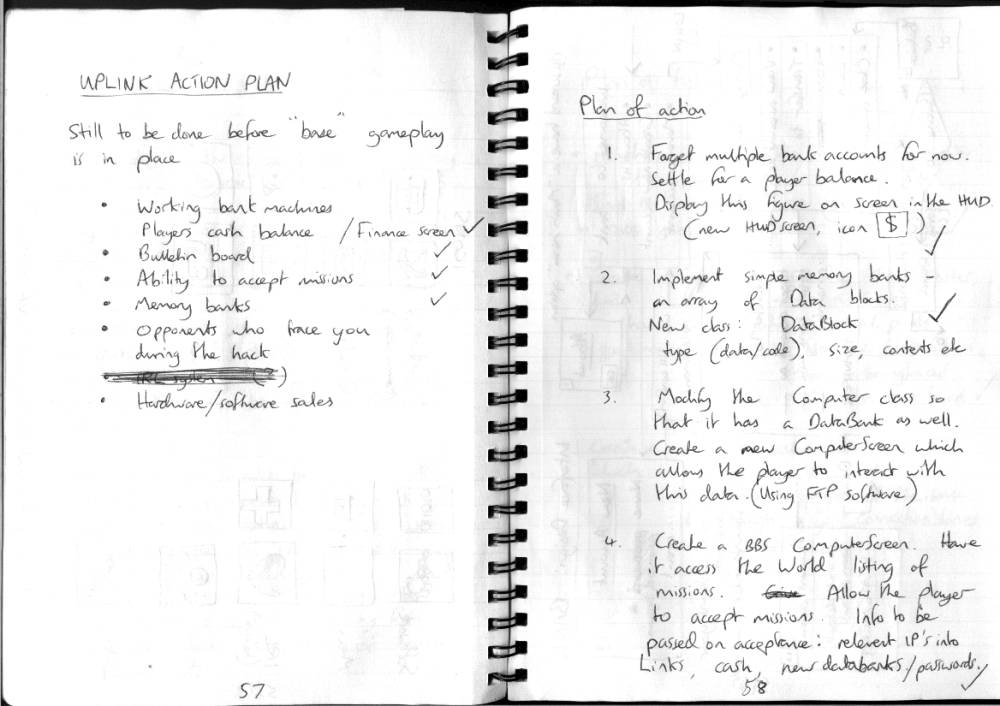 UPLINK ACTION PLAN
Still to be done before "base" gameplay
is in place
• Working bank machines
Players cash balance / Finance screen ✓
• Bulletin board ✓
• Ability to accept missions ✓
• Memory banks ✓
• Opponents who trace you
during the hack
• Hardware/software sales
57
Plan of action
1. Forget multiple bank accounts for now.
Settle for a player balance.
Display this figure on screen in the HUD.
(new HUD screen, icon $) ✓
2. Implement simple memory banks -
an array of Data blocks.
New class: DataBlock ✓
type (data/code), size, contents etc
3. Modify the Computer class so
that it has a DataBank as well.
Create a new ComputerScreen which
allows the player to interact with
this data. (Using FTP software)
4. Create a BBS ComputerScreen. Have
it access the World listing of
missions. Allow the player
to accept missions. Info to be
passed on acceptance: relevent IP's into
Links, cash, new databanks/passwords. ✓
58